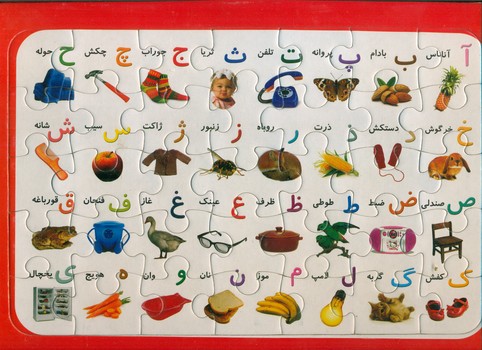 آ آناناس ب بادام پ پروانه ت تلفن ث ثریا ج جوراب چ چکش ح حوله
خ خرگوش د دستکش ذ ذرت ر روباه ز زنبور ژ ژاکت س سیب ش شانه
ص صندلی ض ضبط ط طوطی ظ ظرف ع عینک غ غاز ف فنجان ق قورباغه
ک کفش گ گربه ل لامپ م موز ن نان و وان ه هویج ی یخچال